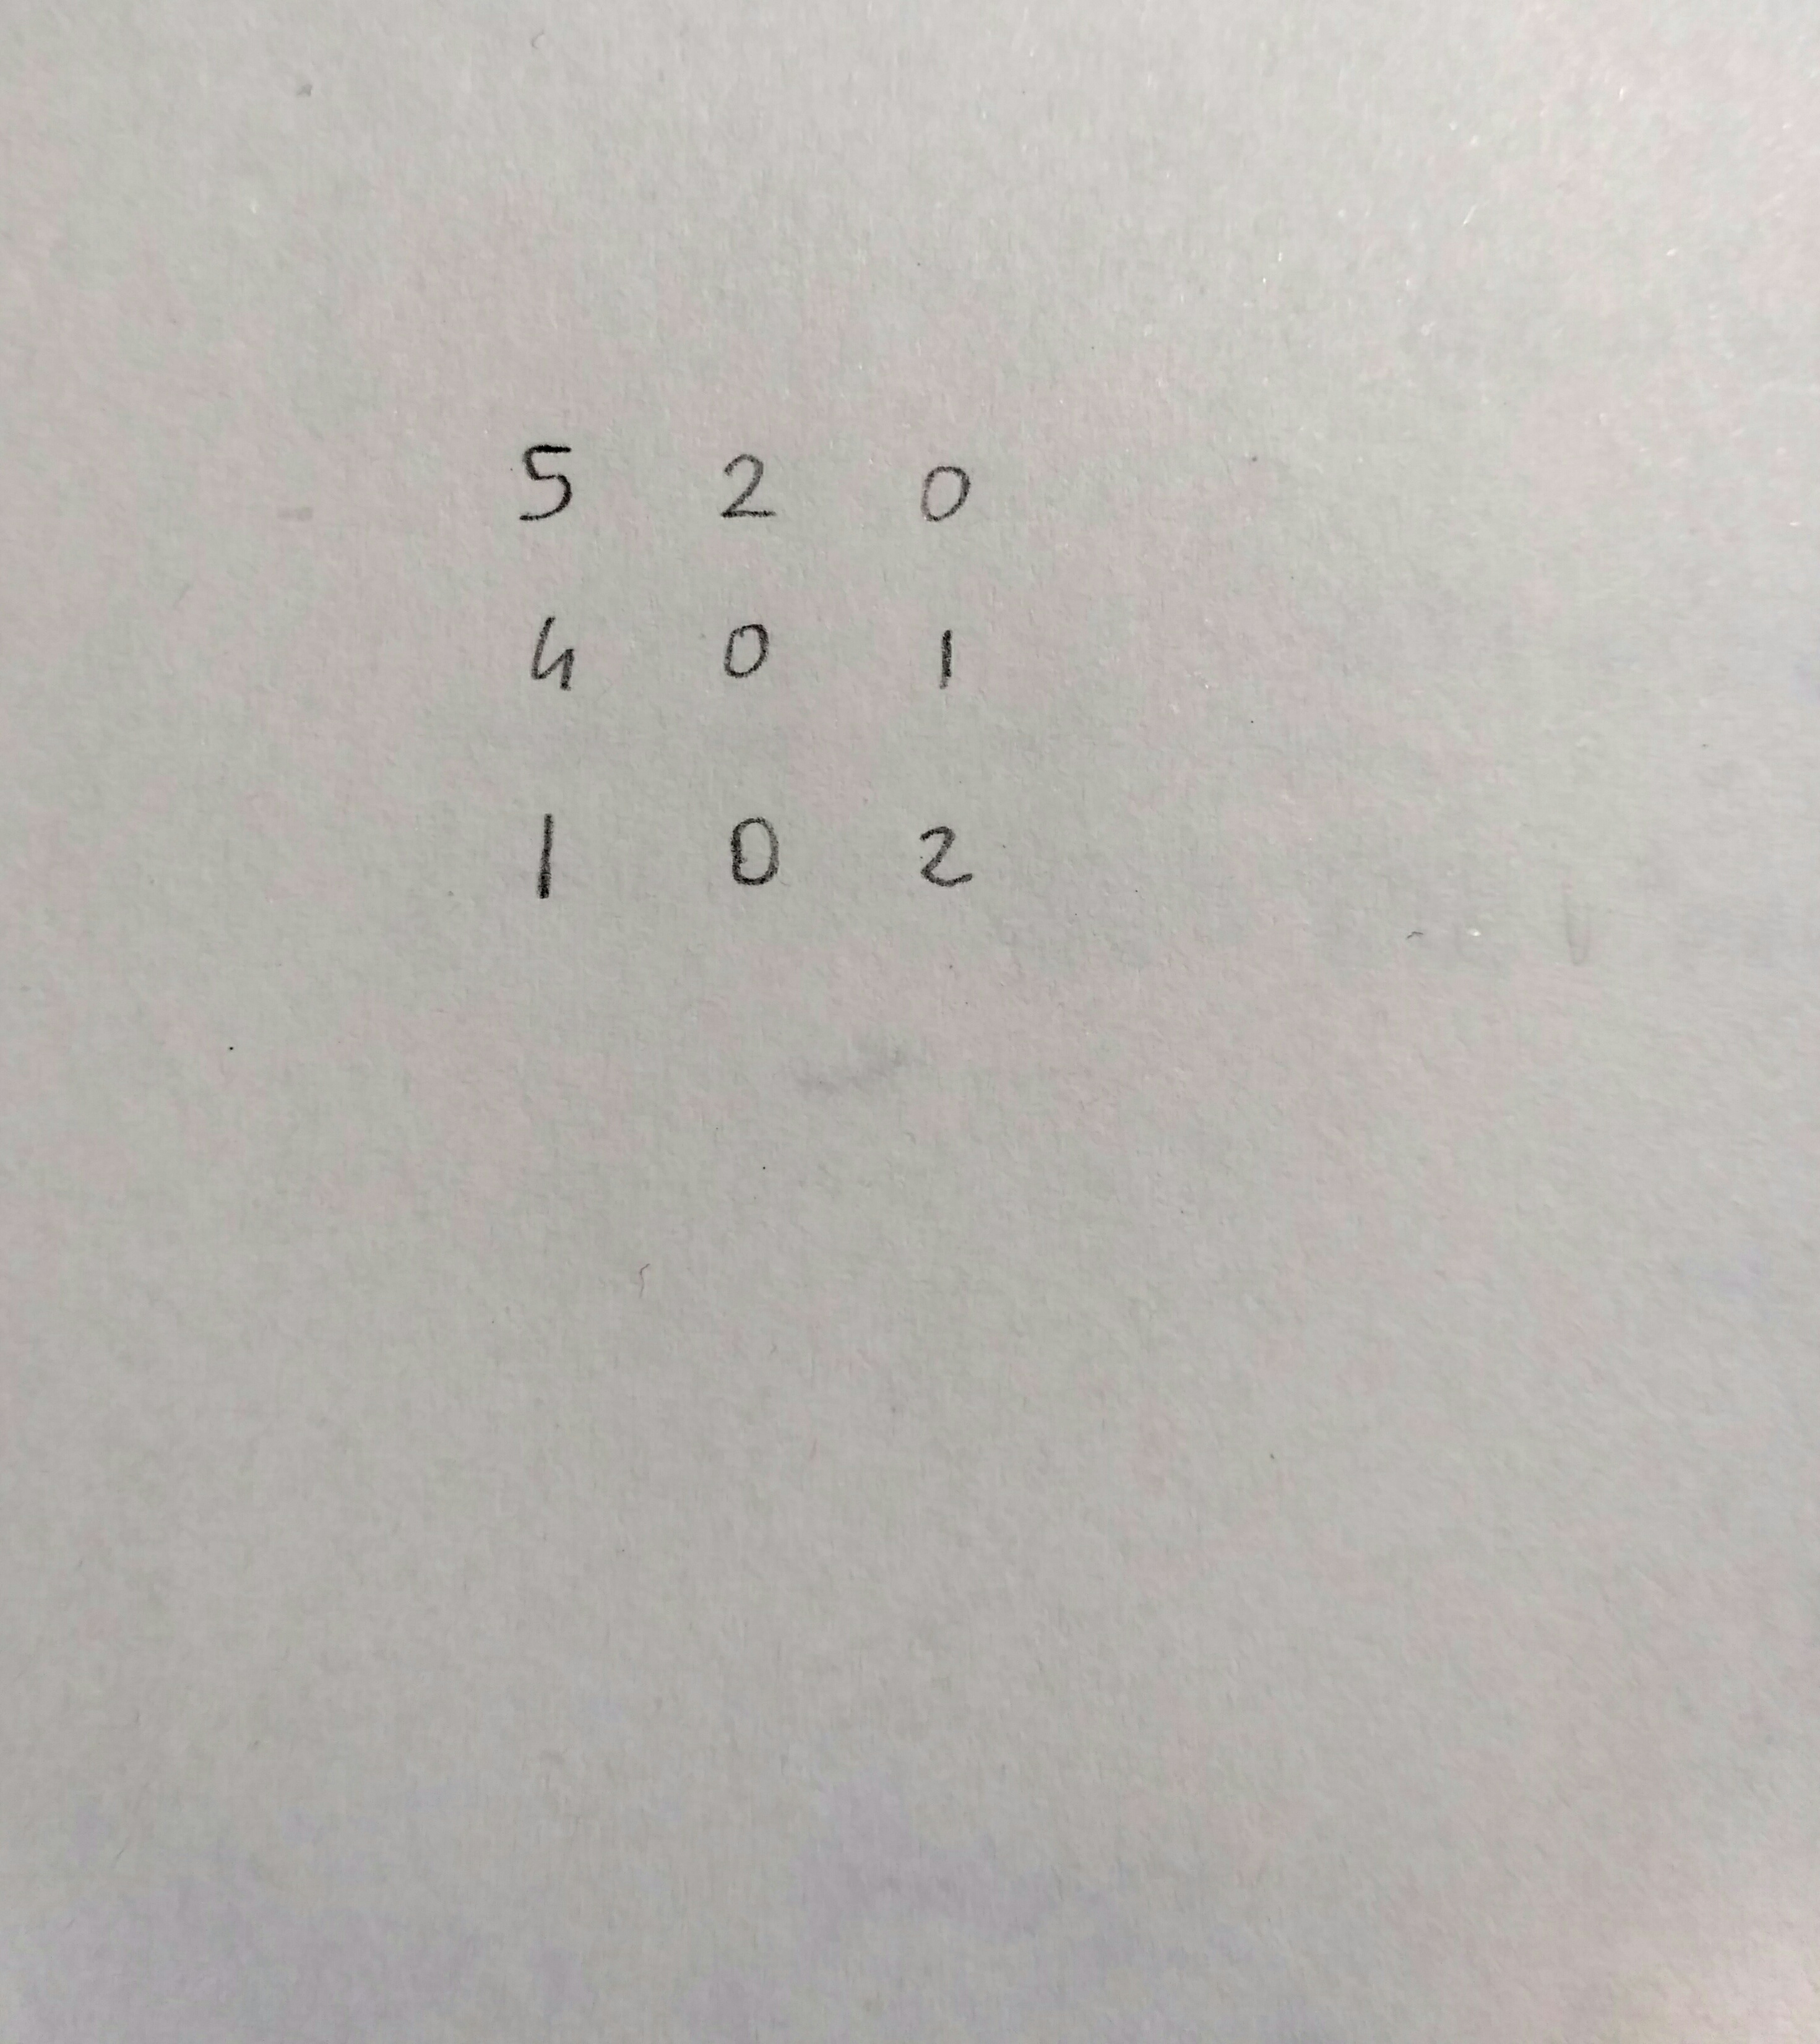 5 2 0
4 0 1
1 0 2